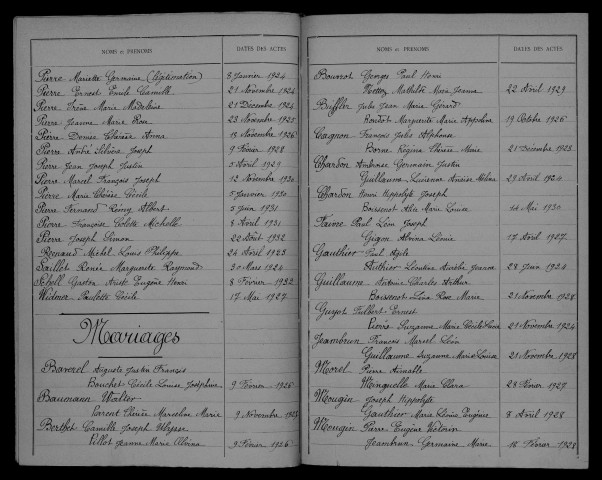 NOMS et PRÉNOMS DATES DES ACTES
Pierre Mariette Germaine (Légitimation) 8 Janvier 1924
Pierre Ernest Emile Camille 21 Novembre 1924
Pierre Irène Marie Madeleine 21 Décembre 1924
Pierre Jeanne Marie Rose 23 Novembre 1925
Pierre Denise Clarisse Anna 19 Novembre 1926
Pierre André Silvère Joseph 9 Février 1928
Pierre Jean Joseph Justin 5 Avril 1929
Pierre Marcel François Joseph 12 Novembre 1930
Pierre Marie Thérèse Cécile 5 Janvier 1930
Pierre Fernand Rémy Albert 5 Juin 1931
Pierre Françoise Colette Michelle 8 Avril 1931
Pierre Joseph Simon 22 Août 1932
Renaud Michel Louis Philippe 24 Avril 1923
Saillet Renée Marguerite Raymond 30 Mars 1924
Schell Gaston Eugène Henri 8 Février 1932
Widmer Paulette Cécile 17 Mai 1927
Mariages
Barerel Auguste Justin Francis
Bouchet Cécile Louise Joséphine 9 Février 1926
Baumann Walter
Parent Thérèse Marceline Marie 9 Novembre
Berthet Camille Joseph Ulysse
Pillot Jeanne Marie Albina 9 Février 1926
NOMS et PRÉNOMS DATES DES ACTES
Bourrot Georges Paul Henri
Mathilde Marie Jeanne 22 Avril 1929
Buffler Jules Jean Marie Gérard
Hondot Marguerite Marie Appoline 19 Octobre 1926
Cagnon François Jules Alphonse
Borne Régina Thérèse Marie 21 Décembre 1928
Chardon Ambroise Germain Justin
Guillaume Lucienne Mélina 29 Avril 1924
Chardon Henri Hippolyte Joseph
Boissenot Alix Marie Louise 14 Mai 1930
Faivre Paul Léon Joseph
Gigon Albina Léonie 17 Avril 1927
Gauthier Paul Agile
Ruthier Léontine Aurélie Jeanne 28 Juin 1924
Guillaume Antoine Charles Arthur
Boissenot Léa Rose Marie 21 Novembre 1928
Guyot Fulbert Ernest
Pierre Suzanne Marie Cécile 29 Novembre 1924
Jeambrun Francis Marcel Léon
Guillaume Suzanne Marie Louise 21 Novembre 1928
Morel Pierre Aimable
Monguelle Marie Clara 28 Février 1927
Mougin Joseph Hippolyte
Gauthier Marie Léonie Eugénie 8 Avril 1928
Mougin Pierre Eugène Victorin
Jeambrun Germaine Marie 18 Février 1928